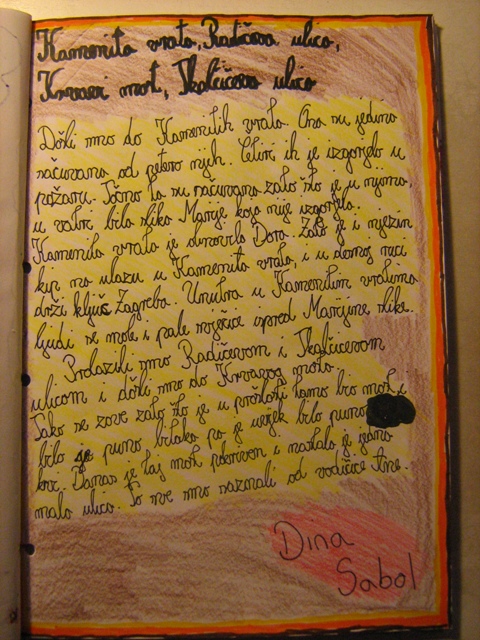 Kamenita vrata, Radićeva ulica,
Krvavi most, Tkalčićeva ulica
Došli smo do Kamenitih vrata. Ona su jedina
sačuvana od petero njih. Četiri ih je izgorjelo u
požaru. Točno ta su sačuvana zato što je u njima,
u vatri bila slika Marije koja nije izgorjela.
Kamenita vrata je čuvala Dora. Zato je i njezin
kip na ulazu u Kamenita vrata, i u desnoj ruci
drži ključ Zagreba. Unutra u Kamenitim vratima
ljudi se mole i pale svjećice ispred Marijine slike.
Prolazili smo Radićevom i Tkalčićevom
ulicom i došli smo do Krvavog mosta.
Tako se zove zato što je u prošlosti tamo bio most i
bilo je puno bitaka pa je uvijek bilo puno
krvi. Danas je taj most and nastala je jedna
mala ulica. To sve smo saznali od vodičice Ane.
Dina
Sabol